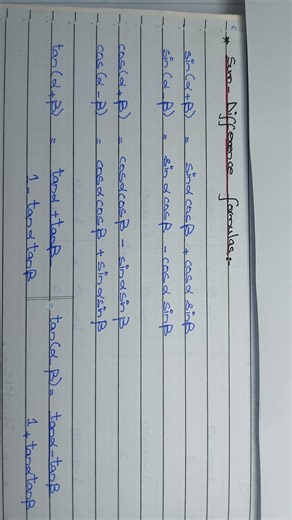 * Sum-Difference formulas:-
sin(α+β) = sinα cosβ + cosα sinβ
sin(α-β) = sinα cosβ - cosα sinβ
cos(α+β) = cosα cosβ - sinα sinβ
cos(α-β) = cosα cosβ + sinα sinβ
tan(α+β) = tanα + tanβ tan(α-β) = tanα - tanβ
1 - tanα tanβ 1 + tanα tanβ